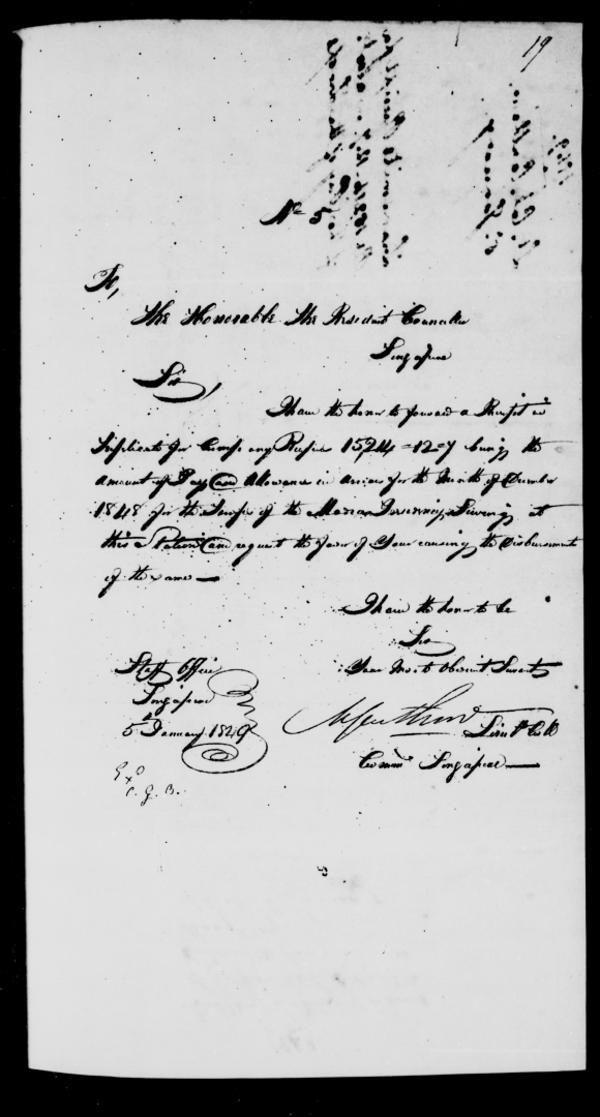 19
No 5
To,
The Honorable The Resident Councillor
Singapore
Sir,
I have the honor to forward a Receipt in
Triplicate for Company Rupees 15,244=12=7 being the
amount of Pay and Allowance in arrear for the Month of December
1848 for the Troops of the Madras Serving at
this Station and request the favor of Your causing the disbursement
of the same —
I have the honor to be
Sir
Your Most Obedient Servant
Staff Office
Singapore
5th January 1849
Lieut Coll
Comm Singapore —
Exd
C. G. B.